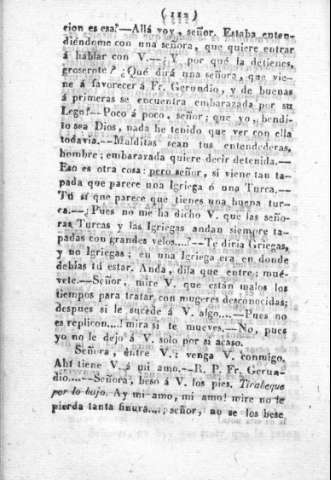 (112)
cion es esa?—Allá voy, señor. Estaba enten-
diéndome con una señora, que quiere entrar
á hablar con V.—¿Y por qué la detienes,
groserote? ¿Qué dirá una señora, que vie-
ne á favorecer á Fr. Gerundio, y de buenas
á primeras se encuentra embarazada por su
Lego?—Poco á poco, señor; que yo, bendi-
to sea Dios, nada he tenido que ver con ella
todavía.—Malditas sean tus entendederas,
hombre; embarazada quiere decir detenida.—
Eso es otra cosa: pero señor, si viene tan ta-
pada que parece una Igriega ó una Turca.—
Tú sí que parece que tienes una buena tur-
ca.—¿Pues no me ha dicho V. que las seño-
ras Turcas y las Igriegas andan siempre ta-
padas con grandes velos....?—Te diria Griegas,
y no Igriegas; en una Igriega era en donde
debias tú estar. Anda, dila que entre; mué-
vete.—Señor, mire V. que están malos los
tiempos para tratar con mugeres desconocidas;
despues si le sucede á V. algo....—Pues no
es replicon...! mira si te mueves.—No, pues
yo no le dejo á V. solo por si acaso.
Señora, entre V.; venga V. conmigo.
Ahí tiene V. á mi amo.—R. P. Fr. Gerun-
dio....—Señora, beso á V. los pies. Tirabeque
por lo bajo. Ay mi amo, mi amo! mire no le
pierda tanta finura....; señor, no se los bese